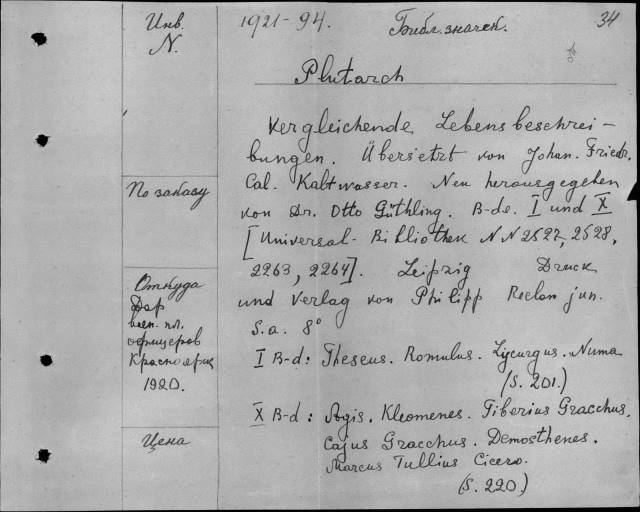 Инв.
N.
1921-94.
Библ. значек.
34
Plutarch
Vergleichende Lebensbeschrei-
bungen. Übersetzt von Johan. Friedr.
Cal. Kaltwasser. Neu herausgegeben
von Dr. Otto Güthling. B-de. I und X
[Universal-Bibliothek NN 2527, 2528,
2263, 2264]. Leipzig Druck
und Verlag von Philipp Reclam jun.
S.a. 8°
I B-d: Theseus. Romulus. Lycurgus. Numa
(S. 201.)
X B-d: Agis. Kleomenes. Tiberius Gracchus.
Cajus Gracchus. Demosthenes.
Marcus Tullius Cicero.
(S. 220)
По заказу
Откуда
Дар
воен. пл.
офицеров
Красноярск
1920.
Цена